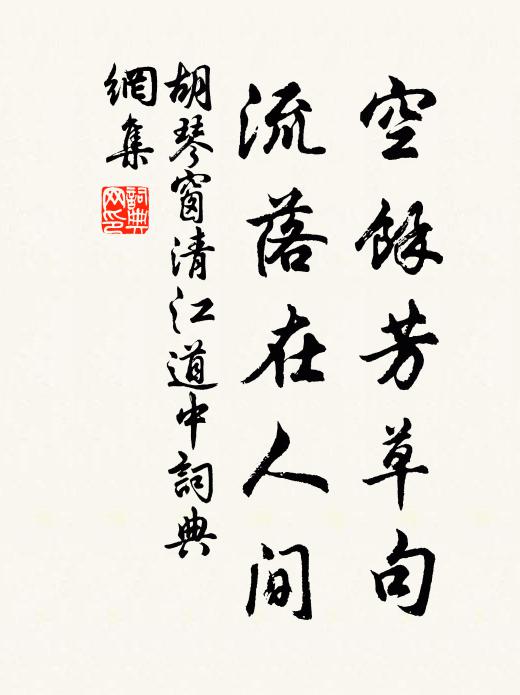 空餘芳草句
流落在人間
胡琴窗清江道中詞典
網集
詞典
网印